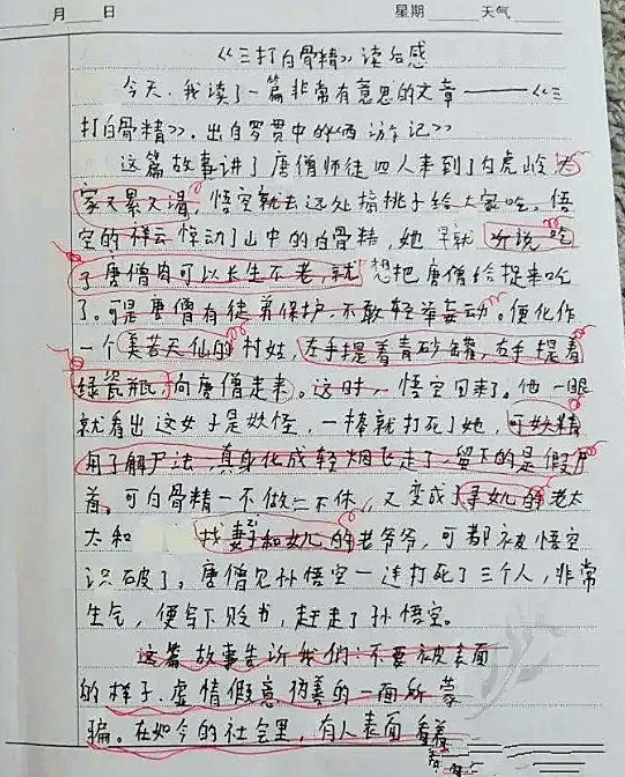 月 日 星期 天气
《三打白骨精》读后感
今天，我读了一篇非常有意思的文章——《三
打白骨精》，出自罗贯中的《西游记》
这篇故事讲了唐僧师徒四人来到了白虎岭，大
家又累又渴，悟空就去远处摘桃子给大家吃。悟
空的祥云惊动了山中的白骨精，她早就听说吃
了唐僧肉可以长生不老，就想把唐僧给捉来吃
了。可是唐僧有徒弟保护，不敢轻举妄动。便化作
一个美若天仙的村姑，左手提着青砂罐，右手提着
绿瓷瓶，向唐僧走来。这时，悟空回来了。他一眼
就看出这女子是妖怪，一棒就打死了她，可妖精
用了解尸法，真身化成轻烟飞走了，留下的是假尸
首。可白骨精一不做二不休，又变成了寻女儿的老太
太和 找妻子和女儿的老爷爷，可都被悟空
识破了。唐僧见孙悟空一连打死了三个人，非常
生气，便写下贬书，赶走了孙悟空。
这篇故事告诉我们：不要被表面
的样子，虚情假意，伪善的一面所蒙
骗。在如今的社会里，有人表面看着